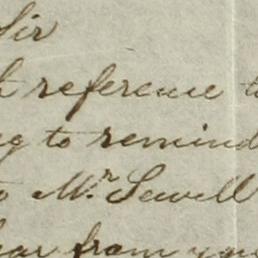 Sir
reference to
to remind
to Mr. Sewell
from you